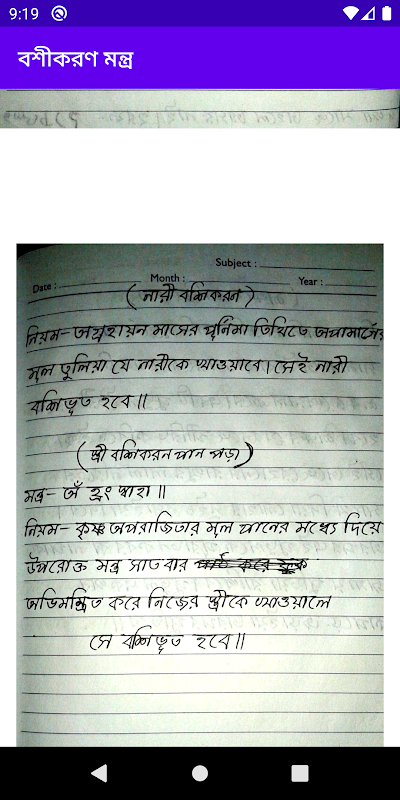 9:19
বশীকরণ মন্ত্র
Subject :
Date : Month : Year :
(নারী বশিকরন)
নিয়ম- অগ্রহায়ন মাসের পূর্নিমা তিথিতে অপামার্গের
মূল তুলিয়া যে নারীকে খাওয়াবে। সেই নারী
বশিভূত হবে॥
(স্ত্রী বশিকরন পান পড়া)
মন্ত্র- ওঁ হ্রং স্বাহা॥
নিয়ম- কৃষ্ণ অপরাজিতার মূল পানের মধ্যে দিয়ে
উপরোক্ত মন্ত্র সাতবার
অভিমন্ত্রিত করে নিজের স্ত্রীকে খাওয়ালে
সে বশিভূত হবে॥